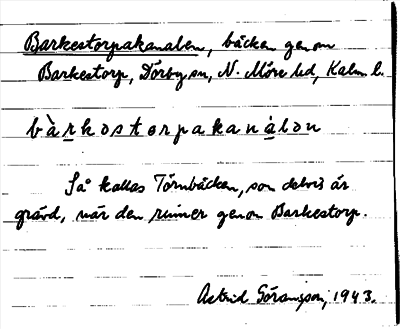 Barkestorpakanalen, bäcken genom
Barkestorp, Dörby sn, N. Möre hd, Kalm. l.
bàrkəstɵrpakanàlən
Så kallas Törnbäcken, som delvis är
grävd, när den rinner genom Barkestorp.
Astrid Göransson, 1943.